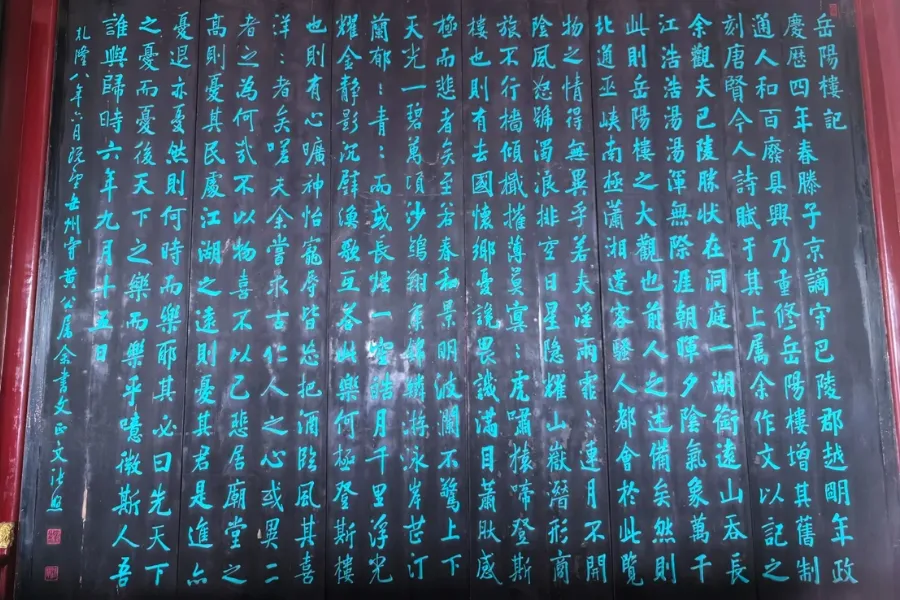 岳陽樓記
慶歷四年春滕子京謫守巴陵郡越明年政
通人和百廢具興乃重修岳陽樓增其舊制
刻唐賢今人詩賦于其上属余作文以記之
余觀夫巴陵勝状在洞庭一湖銜遠山吞長
江浩浩湯湯渾無際涯朝暉夕陰氣象萬千
此則岳陽樓之大觀也前人之述備矣然則
北通巫峽南極瀟湘遷客騷人都會於此覽
物之情得無異乎若夫淫雨霏〻連月不開
陰風怒號濁浪排空日星隱耀山嶽潛形商
旅不行檣傾檝摧薄暮冥〻虎嘯猿啼登斯
樓也則有去國懷鄉憂讒畏譏滿目蕭肰感
極而悲者矣至若春和景明波瀾不驚上下
天光一碧萬頃沙鷗翔集錦鱗游泳岸芷汀
蘭郁〻青〻而或長煙一空皓月千里浮光
耀金静影沉璧漁歌互荅此樂何極登斯樓
也則有心曠神怡寵辱皆忘把酒臨風其喜
洋〻者矣嗟夫余嘗求古仁人之心或異二
者之為何㢤不以物喜不以己悲居廟堂之
高則憂其民處江湖之遠則憂其君是進亦
憂退亦憂然則何時而樂耶其必曰先天下
之憂而憂後天下之樂而樂乎噫微斯人吾
誰與歸時六年九月十五日
乾隆八年六月既望岳州守黄公属余書文正文張照